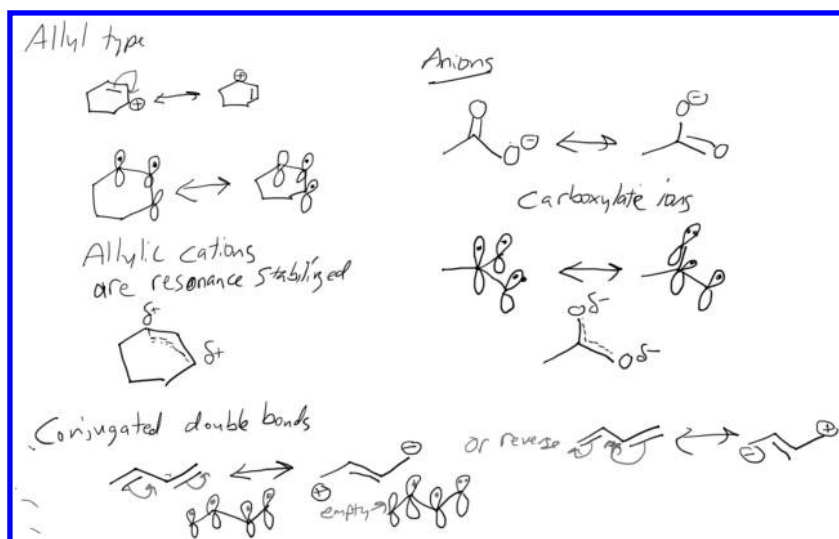 Allyl type
⊕ ⊕
Allylic cations
are resonance stabilized
δ+
δ+
Anions
O O⊖
O⊖ O
Carboxylate ions
Oδ-
Oδ-
Conjugated double bonds
⊖
⊕
empty
or reverse
⊕
⊖